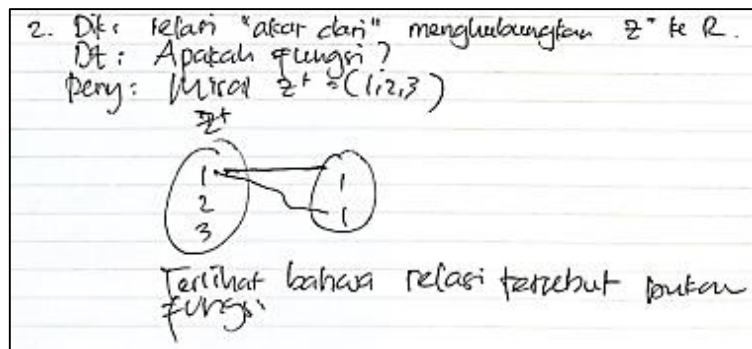 2. Dik: relasi "akar dari" menghubungkan Z⁺ ke R.
Dt: Apakah fungsi?
Peny: Misal Z⁺ = (1,2,3)
Z⁺
1 1
2 1
3
Terlihat bahwa relasi tersebut bukan
fungsi